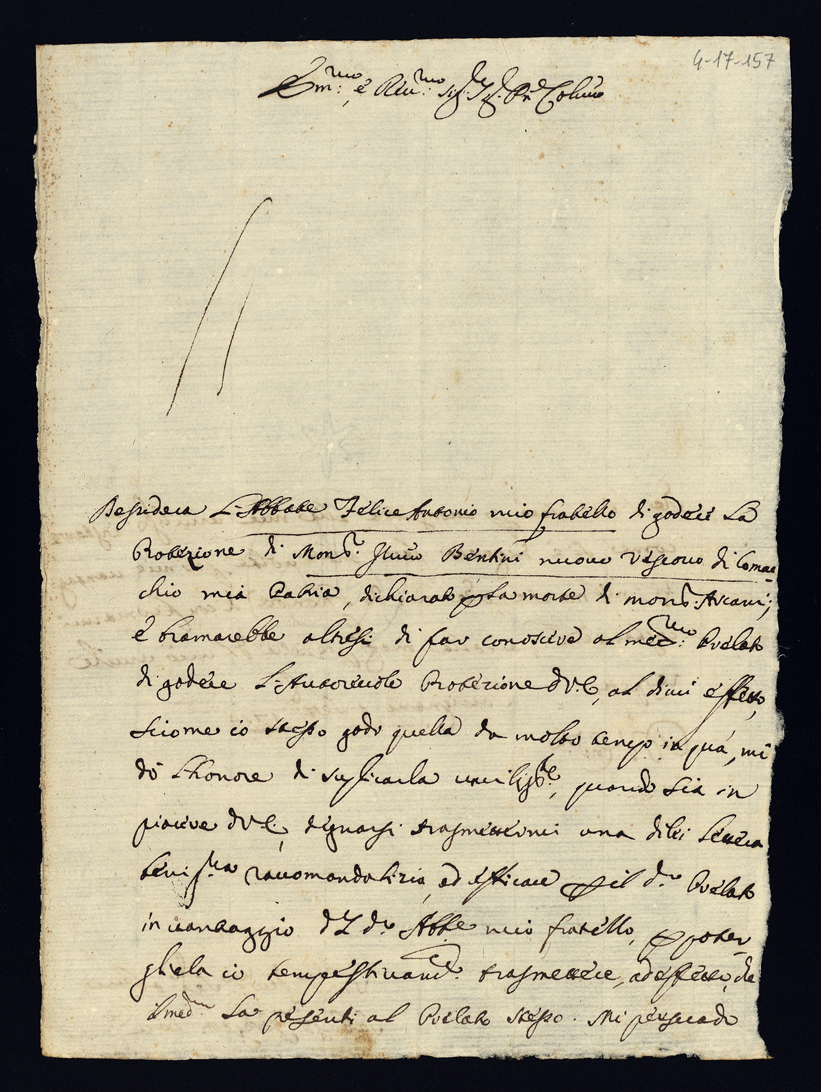 4-17-157
Em:mo e Rev:mo Sig:
Desidera L'Abbate Felice Antonio mio fratello di godere La
Protezione di Mons.r Bentini nuovo Vescovo di Comac=
chio mia Patria, dichiarato p La morte di mons.r Arcani;
e bramarebbe altresi di far conoscere al med:mo Prelato
di godere L'Autorevole Protezione dV.E, al di cui effetto,
siccome io stesso godo quella da molto tempo in quà, mi
dò L'honore di suplicarla umilis.te, quando sia in
piacere dV.E, degnarsi trasmettermi una di lei Lettera
beni.ma racomandatizia, ed efficace p il d.o Prelato
in vantaggio dl d.o Abbe mio fratello, p poter
gliela io tempestivam.e trasmettere, ad effetto, che
il med.o La presenti al Prelato stesso. Mi persuado